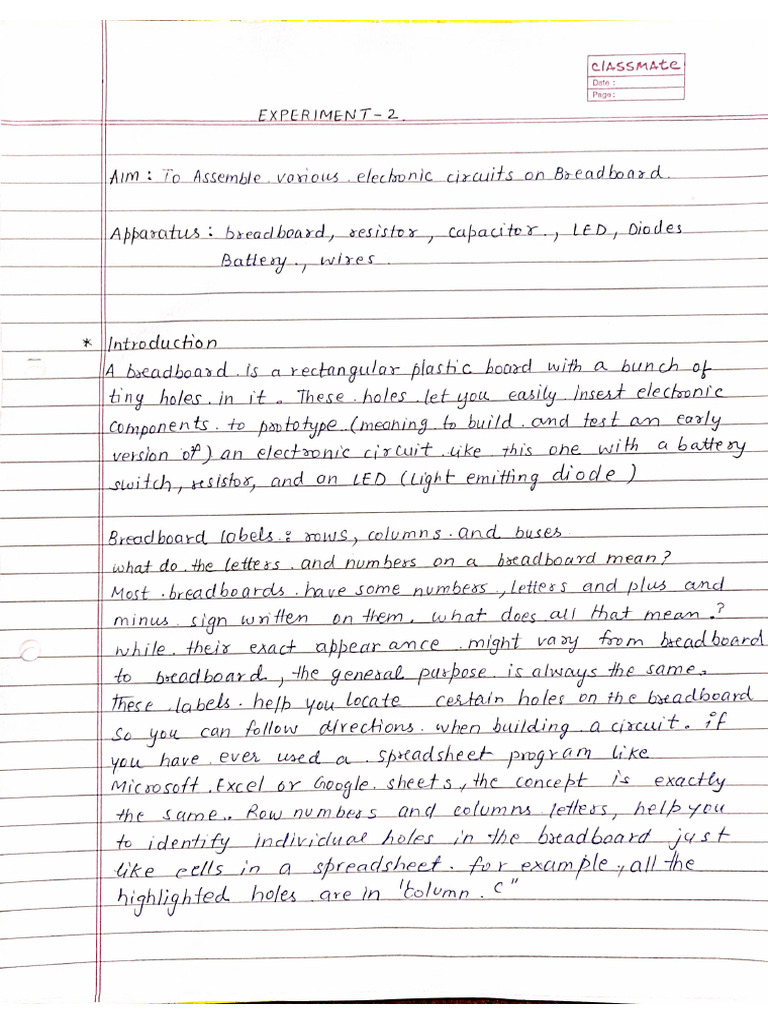 CLASSMATE
Date :
Page :
EXPERIMENT - 2.
Aim : To Assemble various electronic circuits on Breadboard.
Apparatus : breadboard, resistor, capacitor., LED, Diodes
Battery., wires.
* Introduction
A breadboard is a rectangular plastic board with a bunch of
ting holes in it. These holes let you easily insert electronic
components to prototype (meaning to build and test an early
version of) an electronic circuit like this one with a battery
switch, resistor, and an LED (Light emitting diode)
Breadboard labels : rows, columns and buses
what do the letters and numbers on a breadboard mean?
Most breadboards have some numbers, letters and plus and
minus sign written on them. what does all that mean.?
while their exact appearance might vary from breadboard
to breadboard., the general purpose is always the same.
These labels help you locate certain holes on the breadboard
so you can follow directions when building a circuit. if
you have ever used a spreadsheet program like
Microsoft Excel or Google sheets, the concept is exactly
the same.. Row numbers and columns letters, help you
to identify individual holes in the breadboard just
like cells in a spreadsheet. for example, all the
highlighted holes are in "column. C"